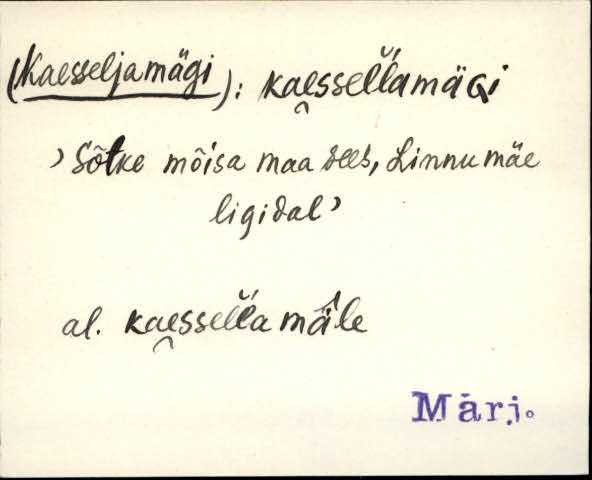 (Kaesseljamägi): kae̯ssel̆l̆amäGi
› Sõtke mõisa maa sees, Linnumäe
ligidal ›
al. kae̯ssel̆l̆a mä̂le
Märj.